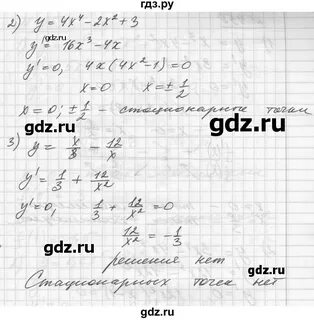 гдз.ру
2) y = 4x⁴ - 2x² + 3
y' = 16x³ - 4x
y' = 0, 4x(4x² - 1) = 0
x = 0 x = ± 1/2
x = 0; ± 1/2 - стационарные точки
gdz.ru gdz.ru
3) y = x/3 - 12/x
y' = 1/3 + 12/x²
y' = 0, 1/3 + 12/x² = 0
gdz.ru gdz.ru
12/x² = - 1/3
решения нет
Стационарных точек нет
gdz.ru